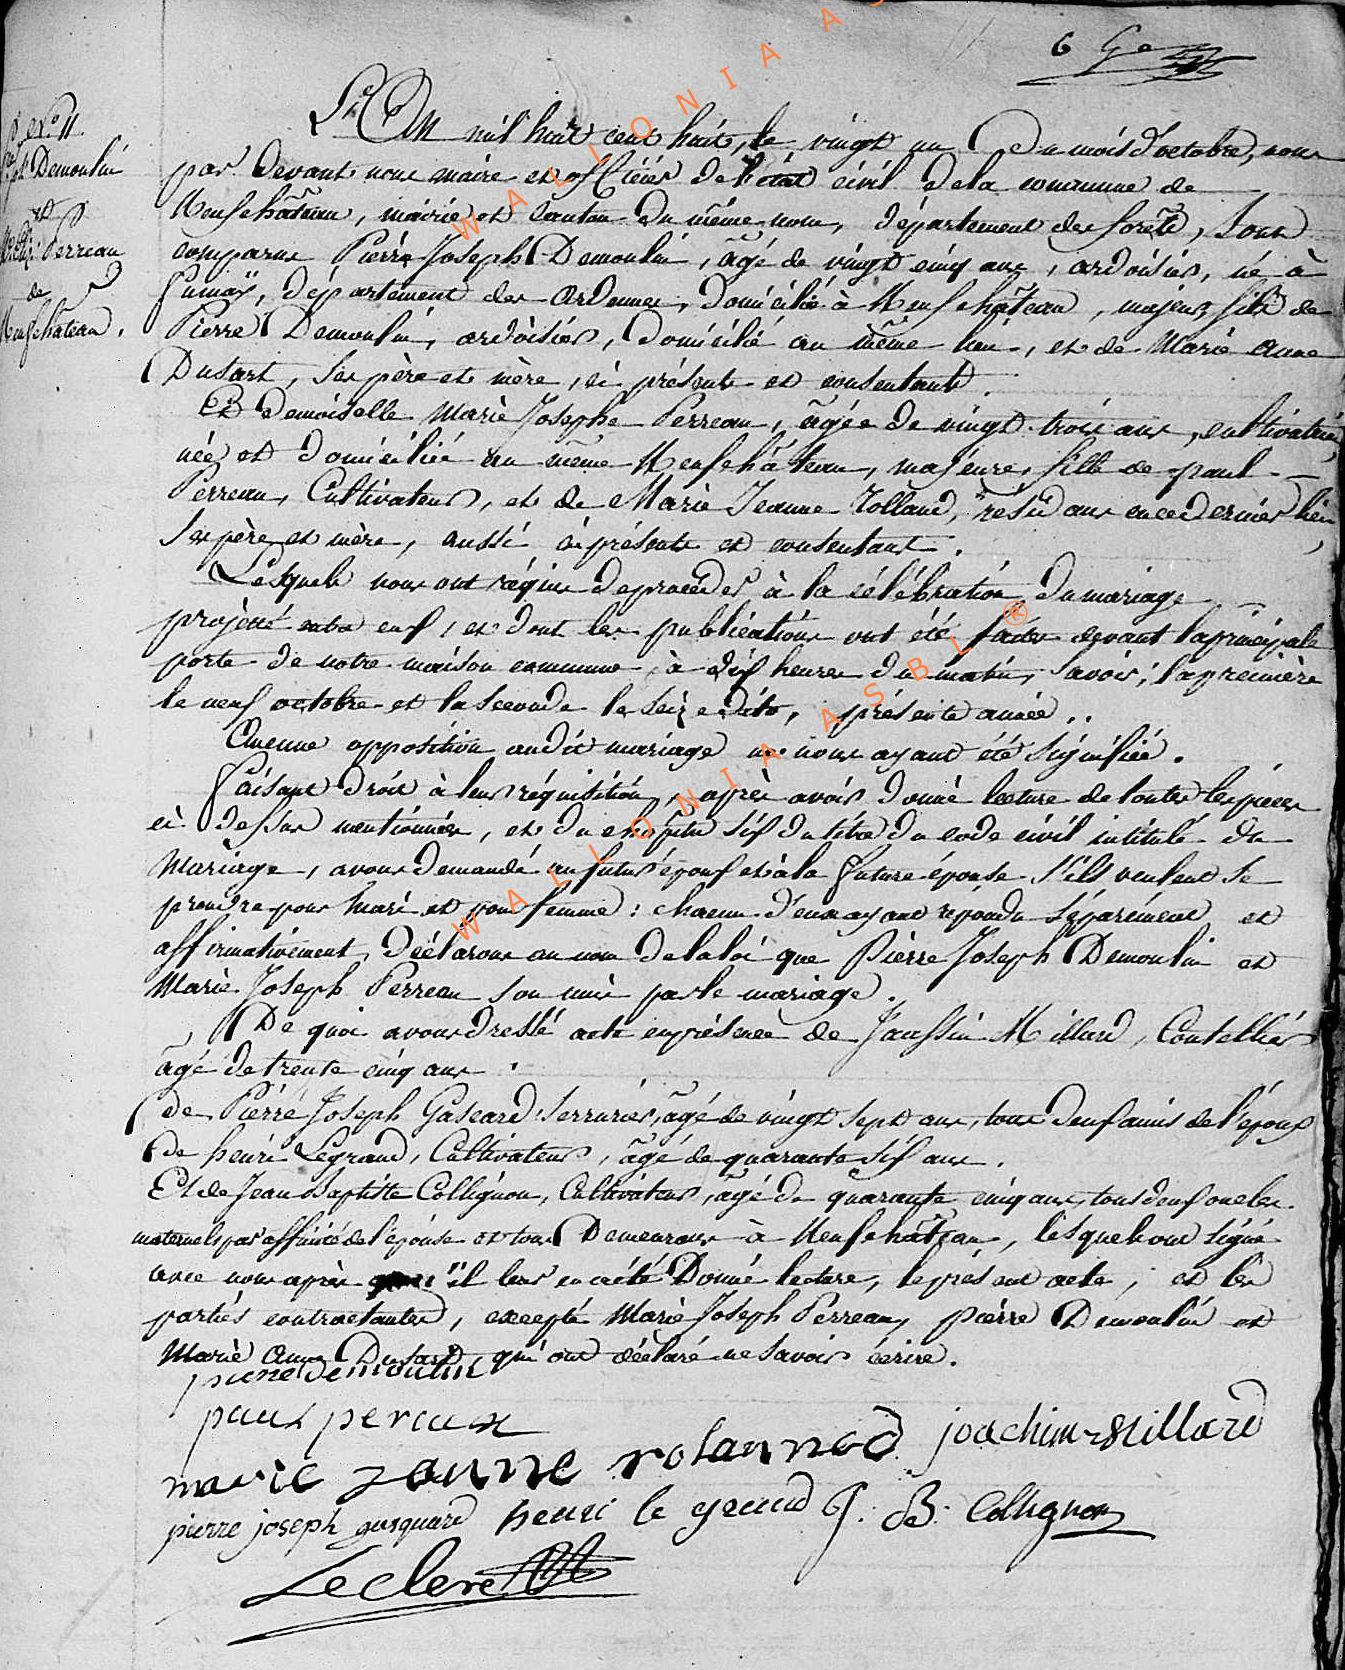 6 Ge
N.° 11.
Demoulin
et
Perreau
de
Neufchâteau.
L'An mil huit cent huit, le vingt un du mois d'octobre, nous
par devant nous maire et officier de l'état civil de la commune de
Neufchâteau, mairie et canton du même nom, département des forêts, sont
comparus Pierre Joseph Demoulin, âgé de vingt cinq ans, ardoisier, né à
fumay, département des Ardennes, domicilié à Neufchâteau, majeur, fils de
Pierre Demoulin, ardoisier, domicilié au même lieu, et de Marie Anne
Dusart, ses père et mère, ci présents et consentants.
Et demoiselle Marie Josephe Perreau, âgée de vingt trois ans, cultivatrice,
née et domiciliée au même Neufchâteau, majeure, fille de paul
Perreau, Cultivateur, et de Marie Jeanne Rolland, résidans en ce dernier lieu,
ses père et mère, aussi ci présents et consentants.
Lesquels nous ont requis de procéder à la célébration du mariage
projetté entre eux, et dont les publications ont été faites devant la principale
porte de notre maison commune à dix heures du matin, savoir; la première
le neuf octobre et la seconde le seize dito, présente année..
Aucune opposition audit mariage ne nous ayant été signifiée.
Faisant droit à leur réquisition, après avoir donné lecture de toutes les pièces
ci dessus mentionnées, et du chapitre six du titre du code civil intitulé du
Mariage, avons demandé au futur époux et à la future épouse s'ils veulent se
prendre pour mari et pour femme: chacun d'eux ayant répondu séparément et
affirmativement, déclarons au nom de la loi que Pierre Joseph Demoulin et
Marie Joseph Perreau sont unis par le mariage.
De quoi avons dressé acte en présence de Millard, Coutellier
âgé de trente cinq ans.
de Pierre Joseph Gascard, serrurier, âgé de vingt sept ans, tous deux amis de l'époux
de henri Legrand, Cultivateur, âgé de quarante six ans.
Et de Jean Baptiste Collignon, Cultivateur, âgé de quarante cinq ans, tous deux oncles
maternels par affinité de l'épouse et tous demeurans à Neufchâteau, lesquels ont signé
avec nous après qu'il leur en a été donné lecture, le présent acte, et les
parties contractantes, excepté Marie Joseph Perreau, pierre Demoulin et
Marie Anne Dusart qui ont déclaré ne savoir écrire.
pierre demoulin
paul peraux
marie jeanne rolannd joachim millard
pierre joseph gasquard henri le grand J. B. Collignon
Leclere
WALLONIA ASBL ®
WALLONIA AS